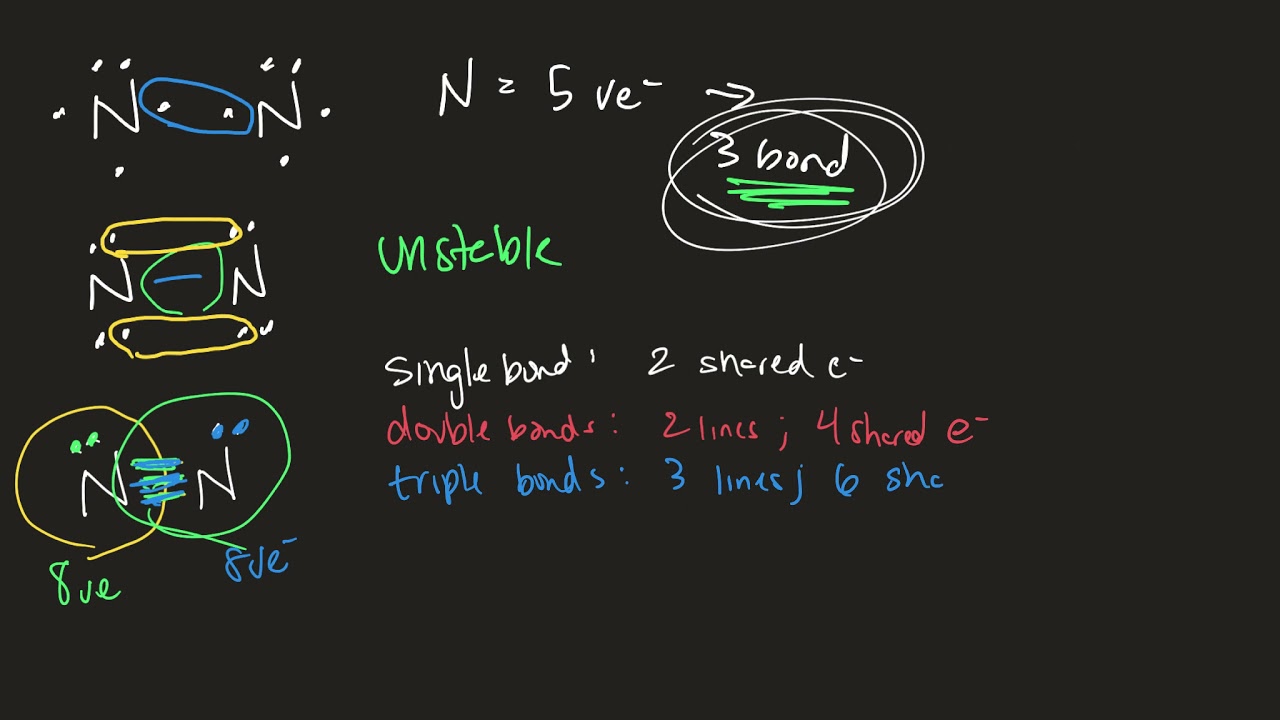 N N
N = 5 ve⁻ →
3 bond
N — N
unstable
single bond: 2 shared e⁻
double bonds: 2 lines; 4 shared e⁻
triple bonds: 3 lines; 6 sha
N ≡ N
8ve
8ve⁻